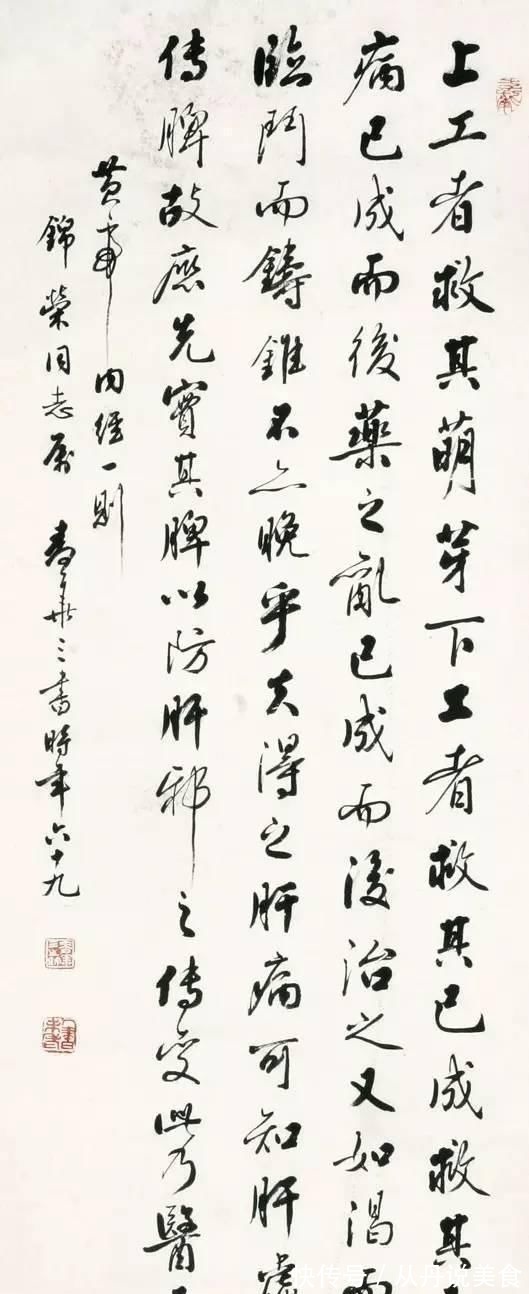 上工者救其萌芽下工者救其已成救其
病已成而後藥之亂已成而後治之又如渴而
臨鬥而鑄錐不亦晚乎夫得之肝病可知肝
傳脾故應先實其脾以防肝邪之傳變此乃醫
黃帝內經一則
錦榮同志屬 壽華三書時年六十九
快传号/从丹说美食